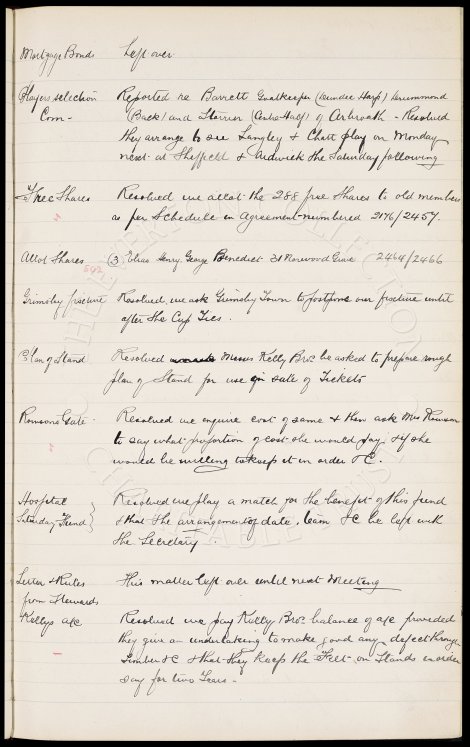 Mortgage Bonds Left over
Players selection Reported re Barrett Goalkeeper (Dundee Harp) Drummond
Com - (Back) and Storrier (Centre Half) of Arbroath - Resolved
they arrange to see Langley & Chatt play on Monday
next at Sheffield & Ardwick the Saturday following
Free Shares Resolved we allot the 288 free shares to old members
as per Schedule in Agreement numbered 2176/2457.
Allot Shares (3) Elias Henry George Benedict 31 Norwood Grove 2464/2466
542
Grimsby fixture Resolved we ask Grimsby Town to postpone our fixture until
after the Cup Ties.
Plan of Stand Resolved Messrs Kelly Bros. be asked to prepare rough
plan of Stand for use in sale of Tickets
Rowsons Gate Resolved we enquire cost of same & then ask Mrs Rowson
to say what proportion of cost she would pay & if she
would be willing to keep it in order &C.
Hospital Resolved we play a match for the benefit of this fund
Saturday Fund } & that the arrangement of date, team &C be left with
the Secretary.
Letter & Rules This matter left over until next Meeting
from Stewards
Kellys a/c Resolved we pay Kelly Bros. balance of a/c provided
they give an undertaking to make good any defect through
Timber &C & that they keep the Felt on Stands in order
say for two Years -